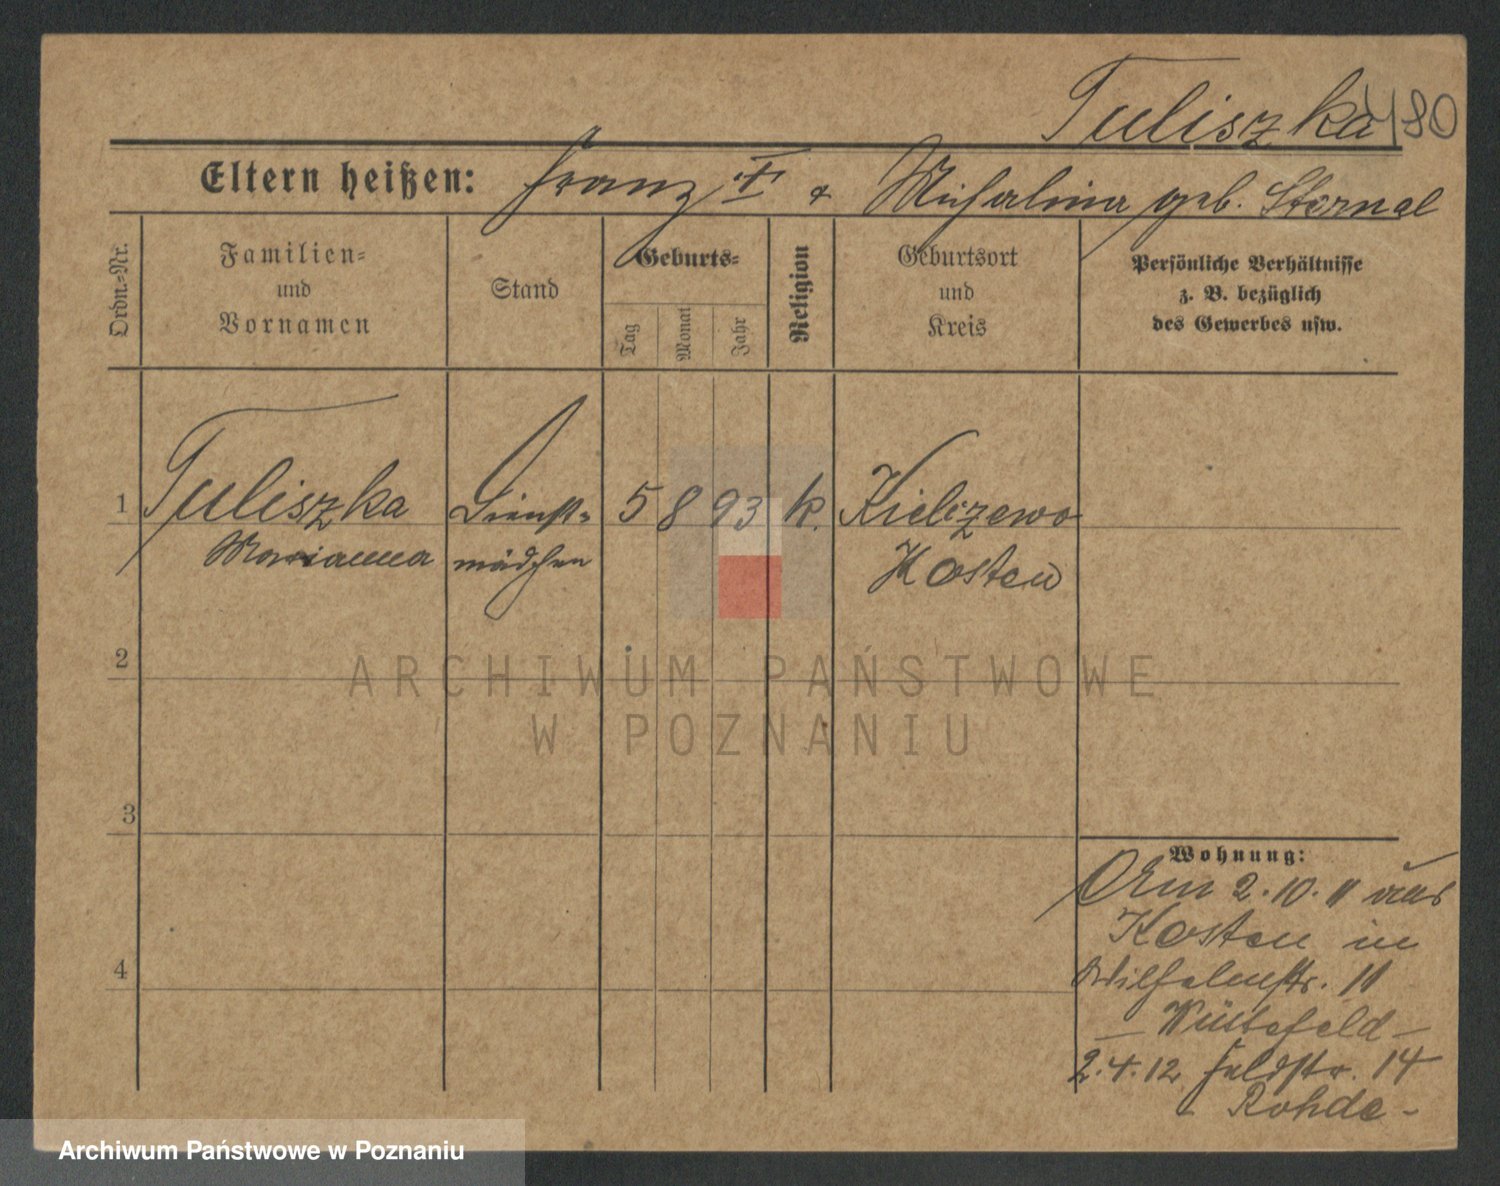 Tuliszka 180
Eltern heißen: Franz † & Michalina geb. Sternal
Ordn.-Nr.
Familien-
und
Vornamen
Stand
Geburts-
Tag
Monat
Jahr
Religion
Geburtsort
und
Kreis
Persönliche Verhältnisse
z. B. bezüglich
des Gewerbes usw.
1 Tuliszka Dienst- 5 8 93 k. Kielczewo
Marianna mädchen Kosten
2
ARCHIWUM PAŃSTWOWE
W POZNANIU
3
Wohnung:
Am 2.10.11 aus
Kosten in
4
Wilhelmstr. 11
– Wüstefeld –
2.4.12 Feldstr. 14
– Rohde –
Archiwum Państwowe w Poznaniu